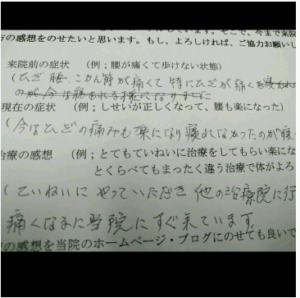 の感想をのせたいと思います。もし、よろしければ、ご協力お願いし
来院前の症状　（例；腰が痛くて歩けない状態）
（ひざ 腰 こかん節が痛くて 特にひざが痛くを
現在の症状　（例；しせいが正しくなって、腰も楽になった）
（今はひどの痛みも楽になり寝れなかったのが寝
治療の感想　（例；とてもていねいに治療をしてもらい楽にな
とくらべてもまったく違う治療で体がよろ
（ていねいに やっていただき 他の治療院に行
痛くなるに当院にすぐ来ています
の感想を当院のホームページ・ブログにのせても良いで